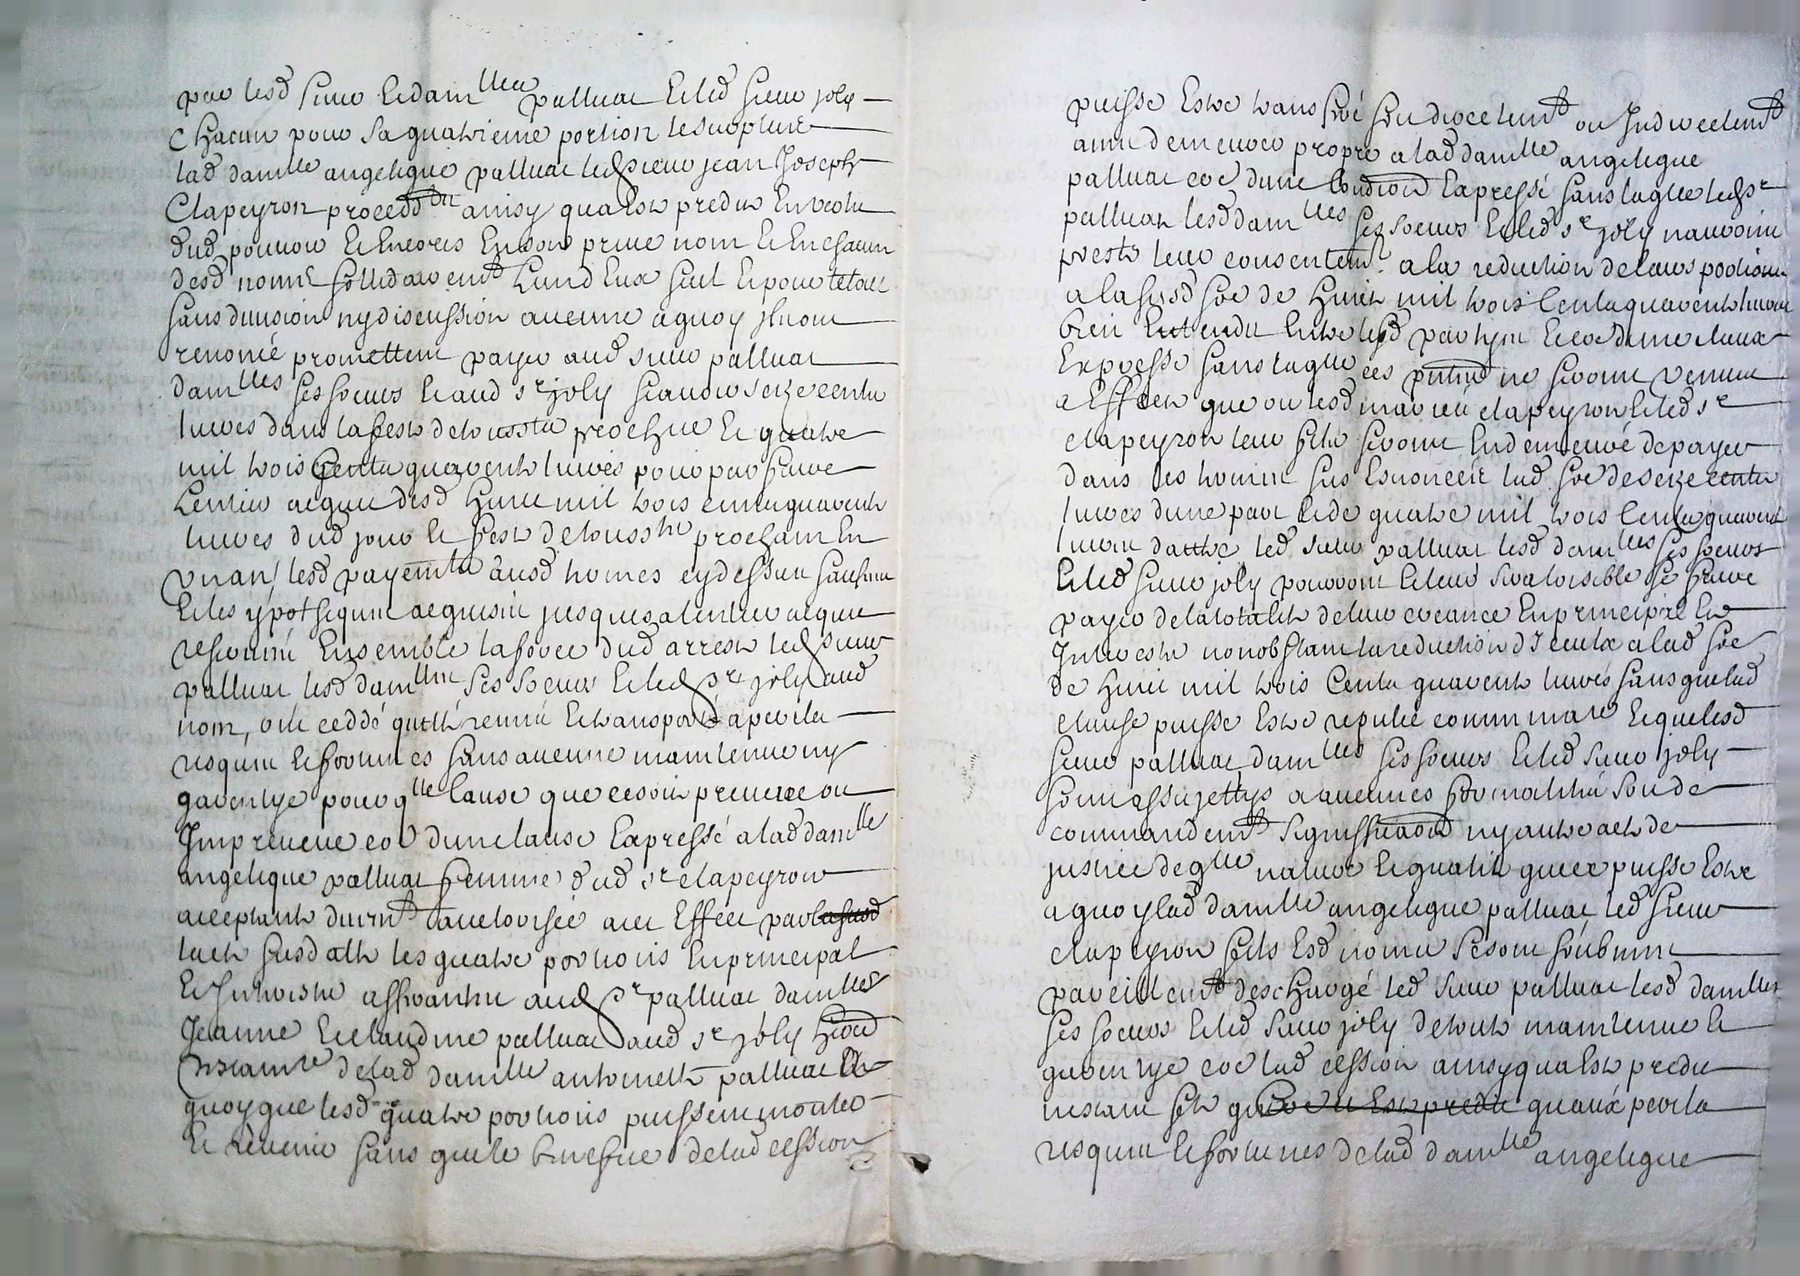 par lesd sieur et dam.lles palluat et led sieur joly
chacun pour sa quatrieme portion lesuoptuit
lad damlle angelique palluat led sieur jean Joseph
Clapeyron procedd ainsy qua est predit en vertu
dud pouvoir et encores en son prive nom et en chacun
desd noms sollidairemt lun deux seul et pour le tout
sans division ny discussion aucune a quoy ils ont
renoncé promettent payer aud sieur palluat
damlles ses soeurs et aud sr joly scavoir seize cents
livres dans la feste de toussts prochne et quatre
mil trois cents quarente livres pour parfaire
lentier acquit desd huit mil trois cents quarente
livres dud jour et feste de toussts prochain en
un an lesd payemts ausd termes cy dessus
et les ypotheques acquises jusques a lentier acquit
reservées ensemble la force dud arrest led sieur
palluat lesd damlles ses soeurs et led sr joly aud
nom, ont ceddé quitté remis et transporté a perils
risques et fortunes sans aucune maintenue ny
garentye pour qlle cause que ce soit preveue ou
Impreveue car dune clause expresse a lad damlle
angelique palluat femme dud sr clapeyron
acceptante duemt authorisée a cet effect par
lacte susdatte les quatre portions en principal
et Interests afferants aud sr palluat damlles
Jeanne et claudine palluat aud sr joly
de lad damlle antoinette palluat et
quoyque lesd quatre portions puissent monter
et revenir sans que le benefice de lad cession
puisse estre transferé directemt ou Indirectemt
ains demeurer propre a lad damlle angelique
palluat car dune condition expresse sans laqlle led sr
palluat lesd damlles ses soeurs et led sr joly nauroint
preste leur consentemt a la reduction de leurs portions
a la susd soe de huit mil trois cents quarente livres
bien entendu entre lesd partyes et car dune clause
Expresse sans laqlle ces pntes ne seront venues
a Effect que ou lesd mariés clapeyron et led sr
clapeyron leur fils seront en demeure de payer
dans les termes sus enoncés lad soe de seize cents
livres dune part et de quatre mil trois cents quarente
livres dautre led sieur palluat lesd damlles ses soeurs
et led sieur joly pourront et leur sera loisible se faire
payer de la totalité de leur creance en principal et
Interests nonobstant la reduction dIceux a lad soe
de huit mil trois cents quarente livres sans que lad
clause puisse estre reputée comminatre et que lesd
sieur palluat damlles ses soeurs et led sieur joly
soint assujettys a aucunes formalités soit de
commandemt signiffication ny autre acte de
justice de qlle nature et qualité quice puisse estre
a quoy lad damlle angelique palluat led sieur
clapeyron fils esd noms se sont soubmis
pareillemt deschargé led sieur palluat lesd damlles
ses soeurs et led sieur joly de toute maintenue et
garentye car lad cession ainsy qua est predit
nestant fete que car il est predit quaux perils
risques et fortunes de lad damlle angelique